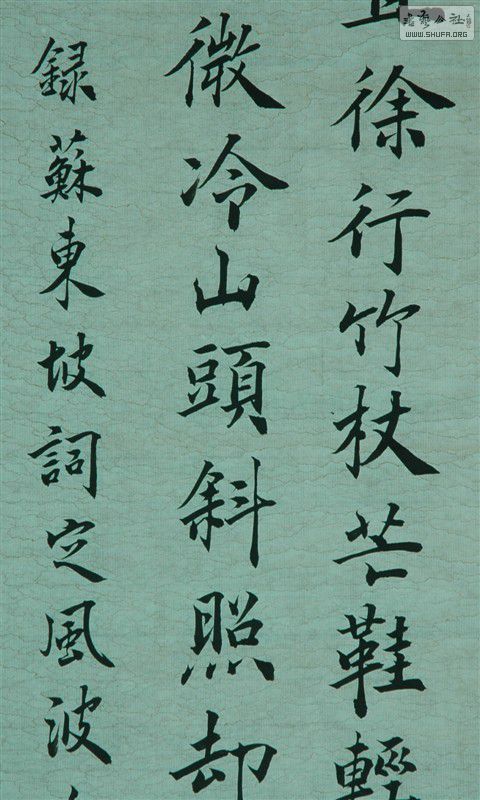 徐行竹杖芒鞋輕
微冷山頭斜照却
録蘇東坡詞定風波
WWW.SHUFA.ORG